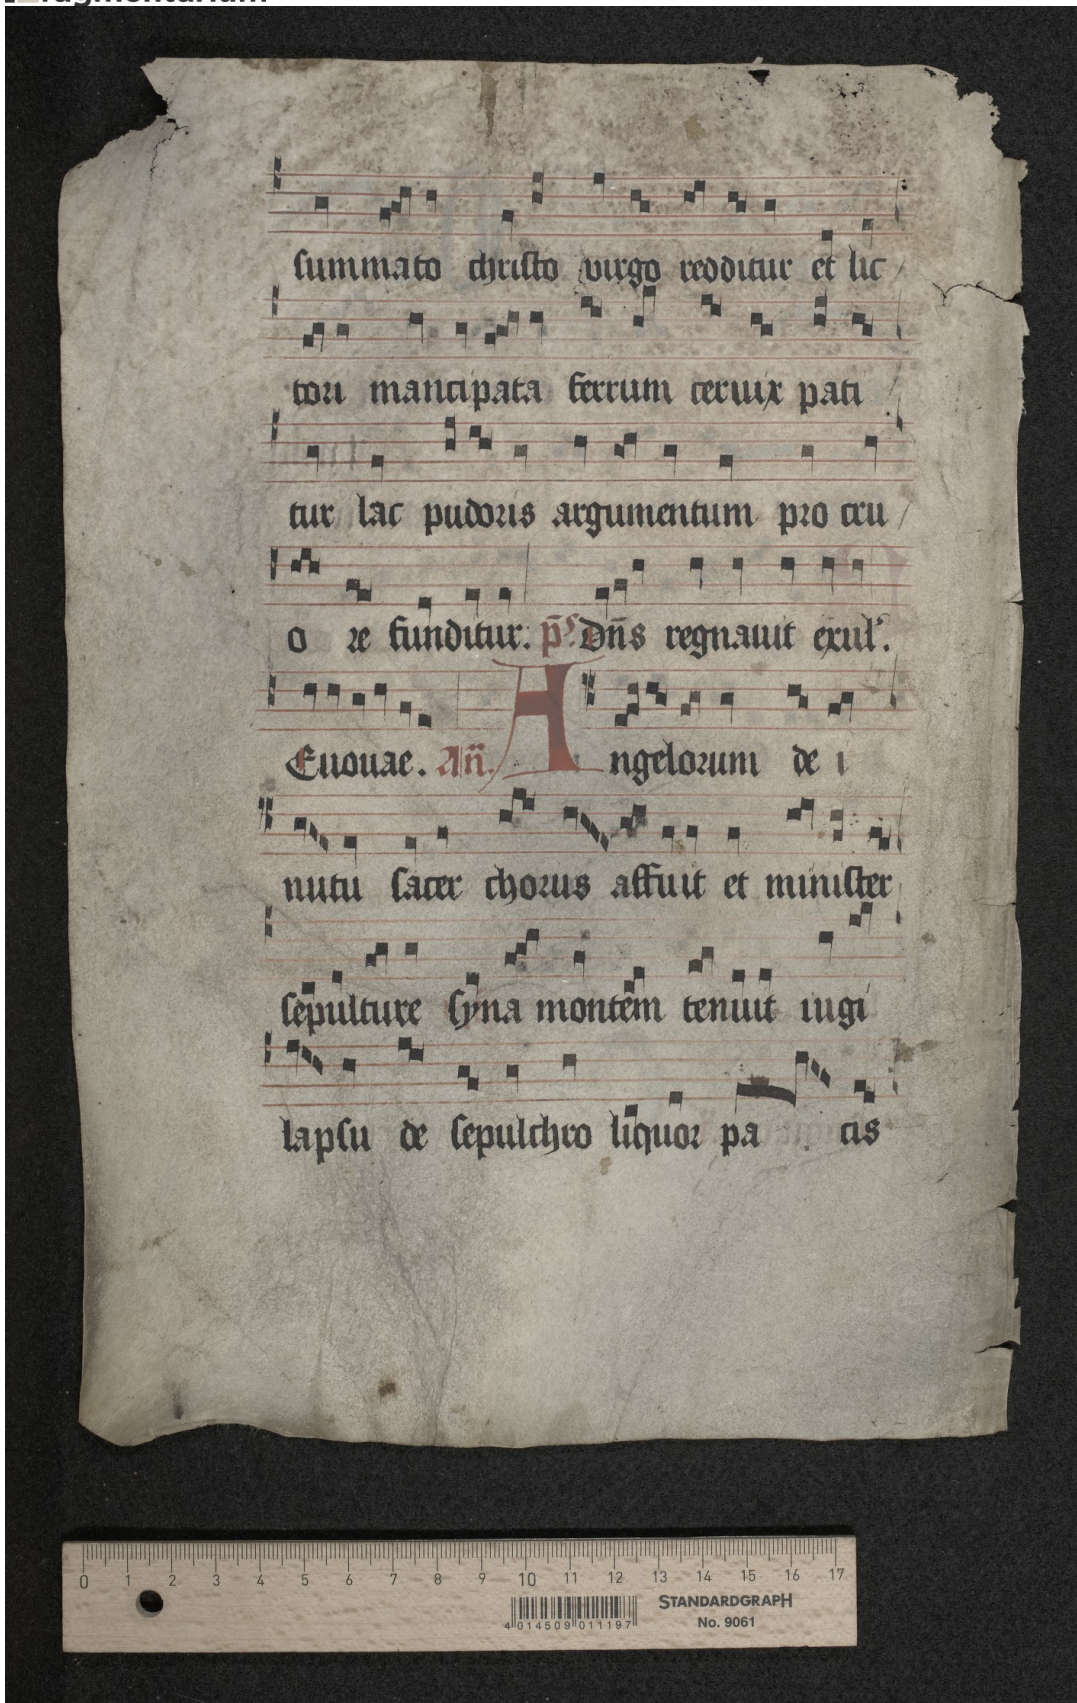 summato christo virgo redditur et lic
tori mancipata ferrum ceruix pati
tur lac pudoris argumentum pro cru
o re funditur. p̄s Dn̄s regnauit exul'.
Euouae. An̄. Angelorum de i
nutu sacer chorus affuit et minister
sepulture syna montem tenuit iugi
lapsu de sepulchro liquor pa cis
0 1 2 3 4 5 6 7 8 9 10 11 12 13 14 15 16 17
STANDARDGRAPH
4 014509 011197
No. 9061